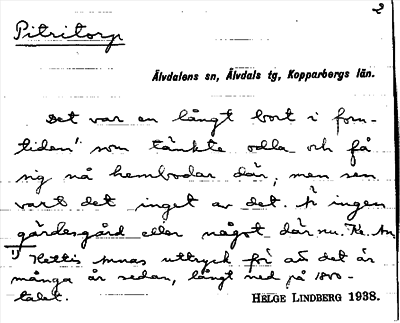 2
Pitritorp
Älvdalens sn, Älvdals tg, Kopparbergs län.
Det var en långt bort i forn-
tiden¹⁾ som tänkte odla och få
sig nå hembodar där, men sen
vart det inget av det. Ä ingen
gärdesgård eller något där nu.
¹⁾ Kettis Annas uttryck för att det är
många år sedan, långt ned på 1800-
talet.
HELGE LINDBERG 1938.